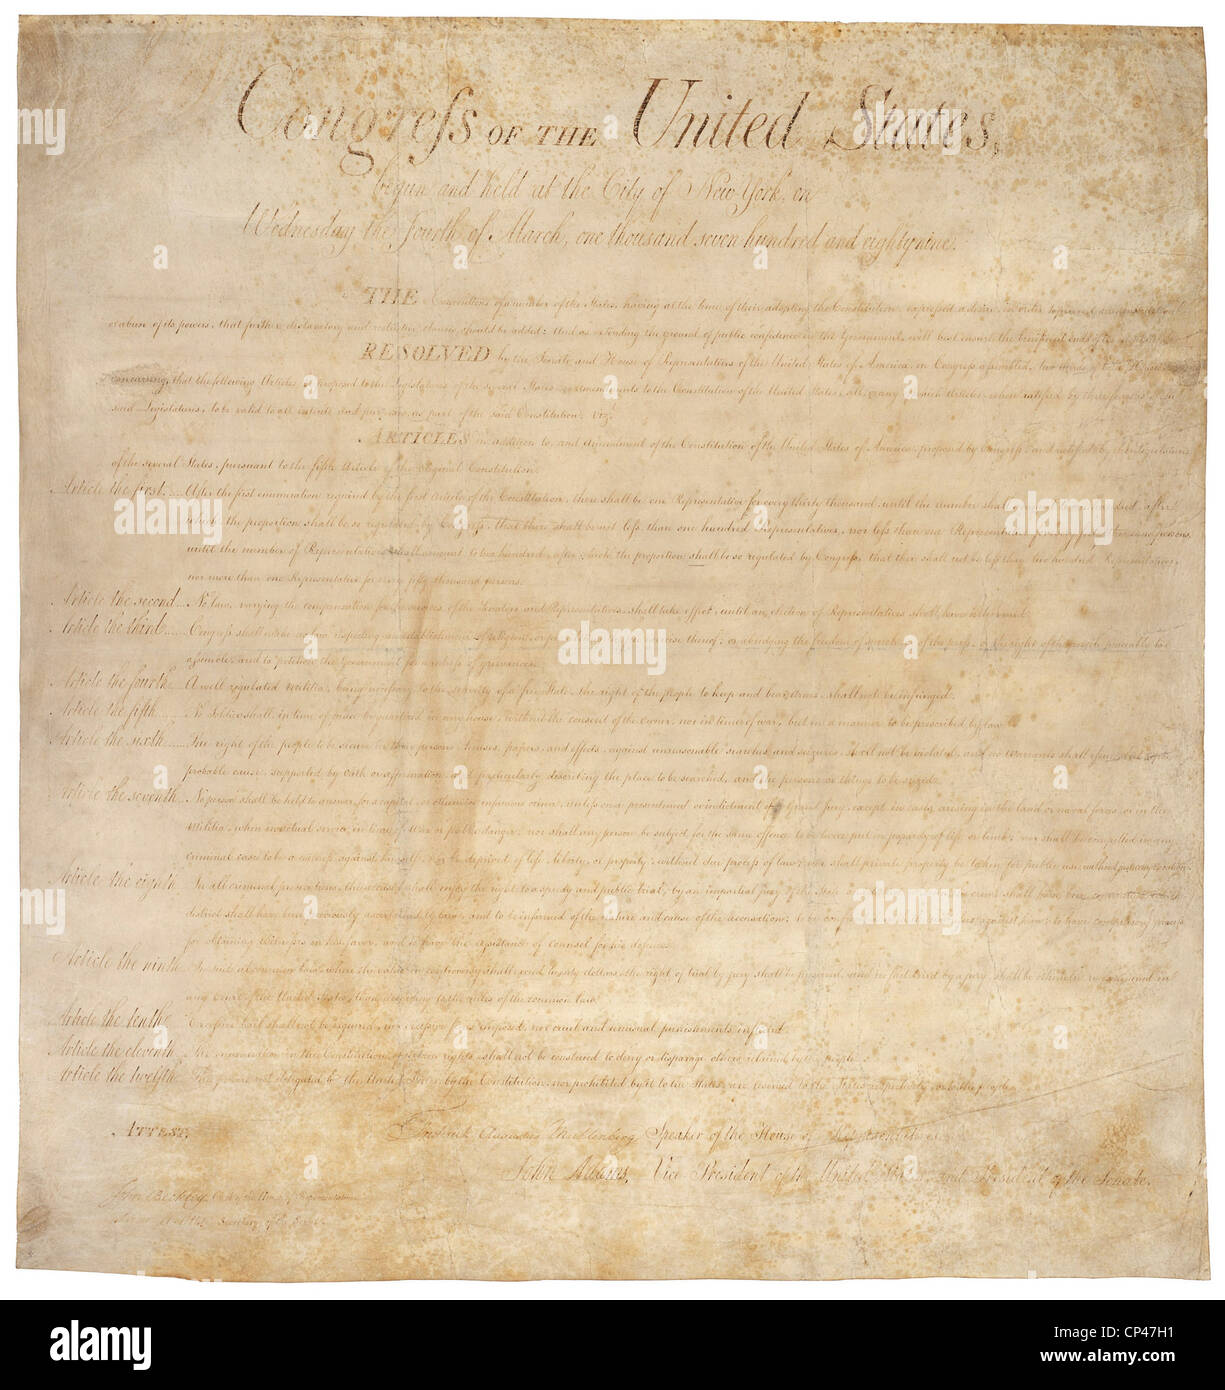 Congreſs OF THE United States,
begun and held at the City of New York, on
Wednesday the Fourth of March, one thousand seven hundred and eighty nine.
THE Conventions of a number of the States, having at the time of their adopting the Constitution, expreſsed a desire, in order to prevent misconstruction
or abuse of its powers, that further declaratory and restrictive clauses should be added: And as extending the ground of public confidence in the Government, will best ensure the beneficent ends of its
RESOLVED by the Senate and House of Representatives of the United States of America, in Congreſs aſsembled, two thirds of both Houses
concurring, that the following Articles be proposed to the Legislatures of the several States, as amendments to the Constitution of the United States, all, or any of which Articles, when ratified by three fourths of the
said Legislatures, to be valid to all intents and purposes, as part of the said Constitution. Viz.
ARTICLES in addition to, and amendment of the Constitution of the United States of America, proposed by Congreſs and ratified by the Legislatures
of the several States, pursuant to the fifth Article of the original Constitution.
Article the first..... After the first enumeration required by the first Article of the Constitution, there shall be one Representative for every thirty thousand, until the number shall amount to one hundred, after
which, the proportion shall be so regulated by Congreſs, that there shall be not leſs than one hundred Representatives, nor leſs than one Representative for every forty thousand persons,
until the number of Representatives shall amount to two hundred, after which the proportion shall be so regulated by Congreſs, that there shall not be leſs than two hundred Representatives,
nor more than one Representative for every fifty thousand persons.
Article the second... No law, varying the compensation for the services of the Senators and Representatives, shall take effect, until an election of Representatives shall have intervened.
Article the third...... Congreſs shall make no law respecting an establishment of religion, or prohibiting the free exercise thereof; or abridging the freedom of speech, or of the preſs; or the right of the people peaceably to
aſsemble, and to petition the Government for a redreſs of grievances.
Article the fourth... A well regulated Militia, being neceſsary to the security of a free State, the right of the people to keep and bear Arms, shall not be infringed.
Article the fifth...... No Soldier shall, in time of peace be quartered in any house, without the consent of the owner, nor in time of war, but in a manner to be prescribed by law.
Article the sixth....... The right of the people to be secure in their persons, houses, papers, and effects, against unreasonable searches and seizures, shall not be violated, and no Warrants shall iſsue, but upon
probable cause, supported by Oath or affirmation, and particularly describing the place to be searched, and the persons or things to be seized.
Article the seventh.. No person shall be held to answer for a capital, or otherwise infamous crime, unleſs on a presentment or indictment of a Grand Jury, except in cases arising in the land or naval forces, or in the
Militia, when in actual service in time of War or public danger; nor shall any person be subject for the same offence to be twice put in jeopardy of life or limb; nor shall be compelled in any
criminal case to be a witneſs against himself, nor be deprived of life, liberty, or property, without due proceſs of law; nor shall private property be taken for public use, without just compensation.
Article the eighth... In all criminal prosecutions, the accused shall enjoy the right to a speedy and public trial, by an impartial jury of the State and district wherein the crime shall have been committed, which
district shall have been previously ascertained by law, and to be informed of the nature and cause of the accusation; to be confronted with the witneſses against him; to have compulsory proceſs
for obtaining Witneſses in his favor, and to have the aſsistance of counsel for his defence.
Article the ninth.. In suits at common law, where the value in controversy shall exceed twenty dollars, the right of trial by jury shall be preserved, and no fact tried by a jury shall be otherwise re-examined in
any Court of the United States, than according to the rules of the common law.
Article the tenth... Exceſsive bail shall not be required, nor exceſsive fines imposed, nor cruel and unusual punishments inflicted.
Article the eleventh. The enumeration in the Constitution, of certain rights, shall not be construed to deny or disparage others retained by the people.
Article the twelfth... The powers not delegated to the United States by the Constitution, nor prohibited by it to the States, are reserved to the States respectively, or to the people.
ATTEST,
Frederick Augustus Muhlenberg Speaker of the House of Representatives.
John Adams, Vice President of the United States, and President of the Senate.
John Beckley, Clerk of the House of Representatives.
Secretary of the Senate.
alamy
Image ID: CP47H1
www.alamy.com